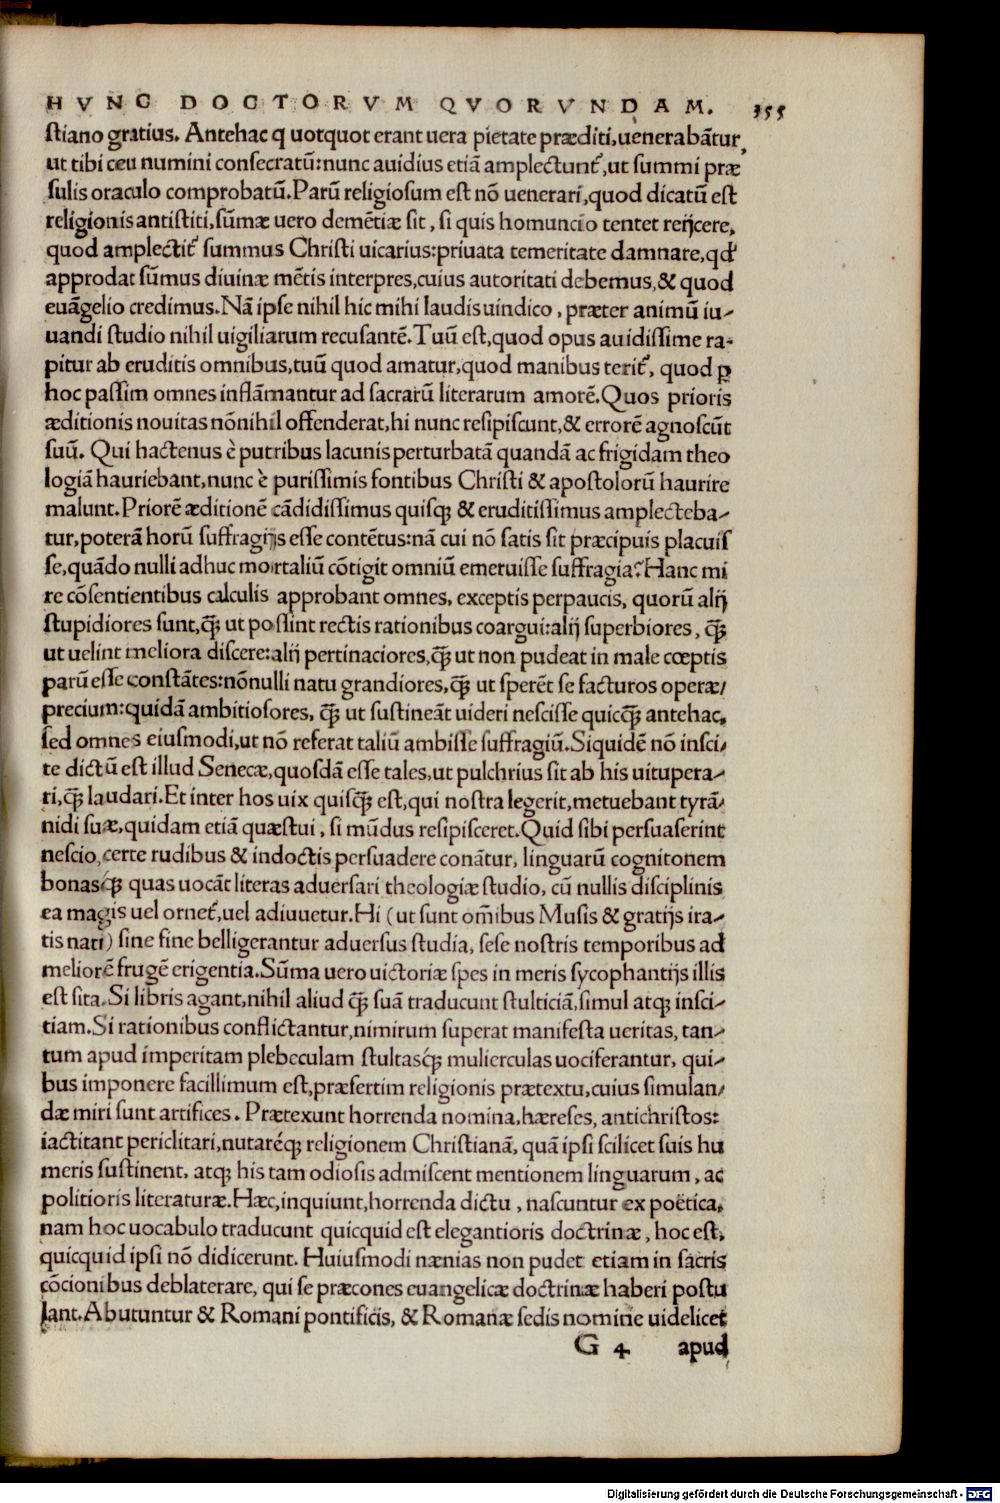 HVNC DOCTORVM QVORVNDAM. 355
stiano gratius. Antehac q uotquot erant uera pietate præditi,uenerabãtur,
ut tibi ceu numini consecratũ:nunc auidius etiã amplectunt᷑,ut summi præ
sulis oraculo comprobatũ.Parũ religiosum est nõ uenerari,quod dicatũ est
religionis antistiti,sũmæ uero demẽtiæ sit, si quis homuncio tentet reijcere,
quod amplectit᷑ summus Christi uicarius:priuata temeritate damnare,qđ
approdat sũmus diuinæ mẽtis interpres,cuius autoritati debemus,& quod
euãgelio credimus.Nã ipse nihil hic mihi laudis uindico, præter animũ iu-
uandi studio nihil uigiliarum recusantẽ.Tuũ est,quod opus auidissime ra-
pitur ab eruditis omnibus,tuũ quod amatur,quod manibus terit᷑, quod ꝑ
hoc passim omnes inflãmantur ad sacrarũ literarum amorẽ.Quos prioris
æditionis nouitas nõnihil offenderat,hi nunc resipiscunt,& errorẽ agnoscũt
suũ. Qui hactenus è putribus lacunis perturbatã quandã ac frigidam theo
logiã hauriebant,nunc è purissimis fontibus Christi & apostolorũ haurire
malunt.Priorẽ æditionẽ cãdidissimus quisq; & eruditissimus amplecteba-
tur,poterã horũ suffragijs esse contẽtus:nã cui nõ satis sit præcipuis placuis
se,quãdo nulli adhuc mortaliũ cõtigit omniũ emeruisse suffragia?Hanc mi
re cõsentientibus calculis approbant omnes, exceptis perpaucis, quorũ alij
stupidiores sunt,q̃; ut possint rectis rationibus coargui:alij superbiores, q̃;
ut uelint meliora discere:alij pertinaciores,q̃; ut non pudeat in male cœptis
parũ esse constãtes:nõnulli natu grandiores,q̃; ut sperẽt se facturos operæ/
precium:quidã ambitiosores, q̃; ut sustineãt uideri nescisse quicq̃; antehac,
sed omnes eiusmodi,ut nõ referat taliũ ambisse suffragiũ.Siquidẽ nõ insci/
te dictũ est illud Senecæ,quosdã esse tales,ut pulchrius sit ab his uitupera-
ri,q̃; laudari.Et inter hos uix quisq̃; est,qui nostra legerit,metuebant tyrã/
nidi suæ,quidam etiã quæstui, si mũdus resipisceret.Quid sibi persuaserint
nescio,certe rudibus & indoctis persuadere conãtur, linguarũ cognitonem
bonasq́; quas uocãt literas aduersari theologiæ studio, cũ nullis disciplinis
ea magis uel ornet᷑,uel adiuuetur.Hi (ut sunt om̃ibus Musis & gratijs ira-
tis nati) sine fine belligerantur aduersus studia, sese nostris temporibus ad
meliorẽ frugẽ erigentia.Sũma uero uictoriæ spes in meris sycophantijs illis
est sita.Si libris agant,nihil aliud q̃; suã traducunt stulticiã,simul atq; insci-
tiam.Si rationibus conflictantur,nimirum superat manifesta ueritas, tan-
tum apud imperitam plebeculam stultasq́; mulierculas uociferantur, qui-
bus imponere facillimum est,præsertim religionis prætextu,cuius simulan/
dæ miri sunt artifices. Prætexunt horrenda nomina,hæreses, antichristos:
iactitant periclitari,nutaréq; religionem Christianã, quã ipsi scilicet suis hu
meris sustinent, atq; his tam odiosis admiscent mentionem linguarum, ac
politioris literaturæ.Hæc,inquiunt,horrenda dictu, nascuntur ex poëtica,
nam hoc uocabulo traducunt quicquid est elegantioris doctrinæ, hoc est,
quicquid ipsi nõ didicerunt. Huiusmodi nænias non pudet etiam in sacris
cõcionibus deblaterare, qui se præcones euangelicæ doctrinæ haberi postu
lant.Abutuntur & Romani pontificis, & Romanæ sedis nomine uidelicet
G 4 apud
Digitalisierung gefördert durch die Deutsche Forschungsgemeinschaft - DFG